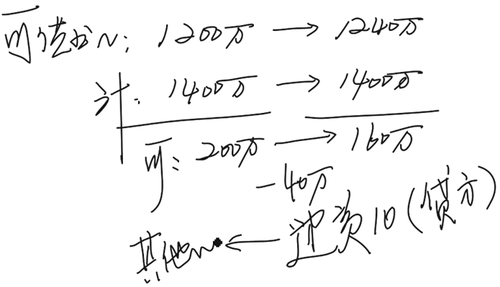 可供出N: 1200万 → 1240万
计: 1400万 → 1400万
可: 200万 → 160万
-40万
其他N ← 递资10(贷方)